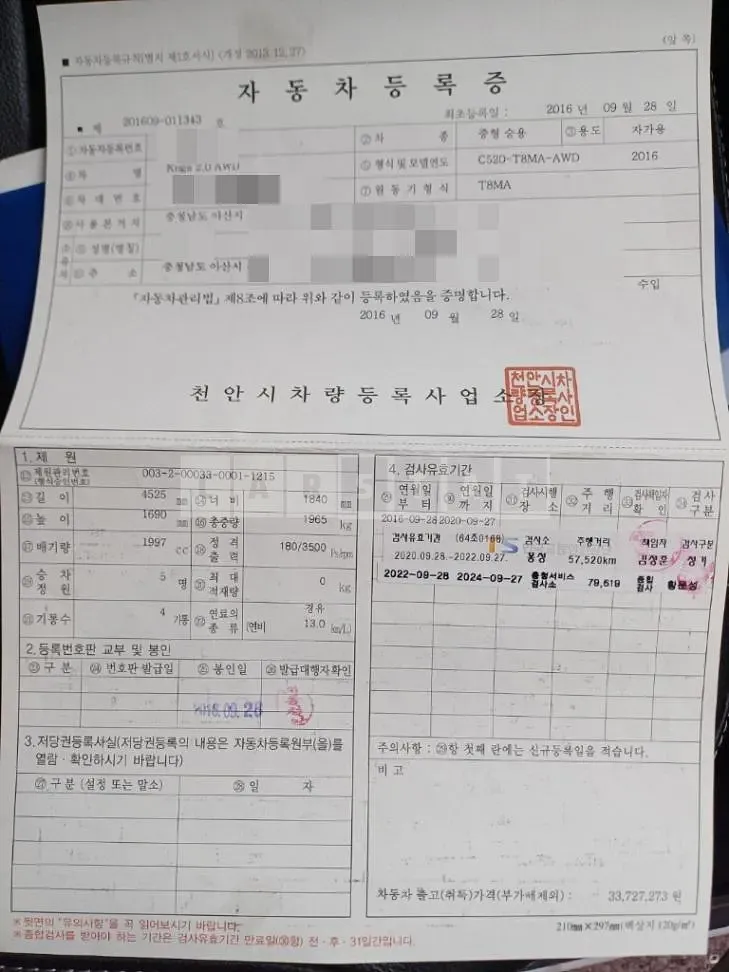 ■ 자동차등록규칙[별지 제1호서식] <개정 2013.12.27>
(앞 쪽)
자 동 차 등 록 증
제 201609-011343 호
최초등록일 : 2016 년 09 월 28 일
①자동차등록번호 ②차 종 중형 승용 ③용도 자가용
④차 명 Kuga 2.0 AWD ⑤형식 및 모델연도 C520-T8MA-AWD 2016
⑥차 대 번 호 ⑦원 동 기 형 식 T8MA
⑧사 용 본 거 지 충청남도 아산시
소유자 ⑨ 성명(명칭)
주 소 충청남도 아산시
수입
「자동차관리법」 제8조에 따라 위와 같이 등록하였음을 증명합니다.
2016 년 09 월 28 일
천 안 시 차 량 등 록 사 업 소 장
천안시차
량등록사
업소장인
1. 제 원
제원관리번호 003-2-00033-0001-1215
(형식승인번호)
길 이 4525 mm 너 비 1840 mm
높 이 1690 mm 총중량 1965 kg
배기량 1997 cc 정 격 출 력 180/3500 Ps/rpm
승 차 정 원 5 명 최 대 적재량 0 kg
기통수 4 기통 연료의 종 류 경유 (연비 13.0 km/L)
2. 등록번호판 교부 및 봉인
㉓구 분 ㉔ 번호판 발급일 ㉕ 봉인일 ㉖ 발급대행자확인
2016.09.28
3. 저당권등록사실(저당권등록의 내용은 자동차등록원부(을)를
열람 · 확인하시기 바랍니다)
㉗구분 (설정 또는 말소) ㉘일 자
4. 검사유효기간
㉙ 연월일부터 ㉚ 연월일까지 ㉛검사시행장소 ㉜ 주 행 거 리 ㉝검사책임자확 인 ㉞ 검사구분
2016-09-28 2020-09-27
검사유효기간 (64조0168) 검사소 주행거리 책임자 검사구분
2020.09.28.-2022.09.27. 57,520km 김창훈 정기
2022-09-28 2024-09-27 검사소 79,519 종합검사
주의사항 : ㉙항 첫째 란에는 신규등록일을 적습니다.
비 고
자동차 출고(취득)가격(부가세제외) : 33,727,273 원
※뒷면의 "유의사항"을 꼭 읽어보시기 바랍니다.
※종합검사를 받아야 하는 기간은 검사유효기간 만료일(㉚항) 전 · 후 · 31일간입니다.
210mm×297mm(백상지 120g/m²)